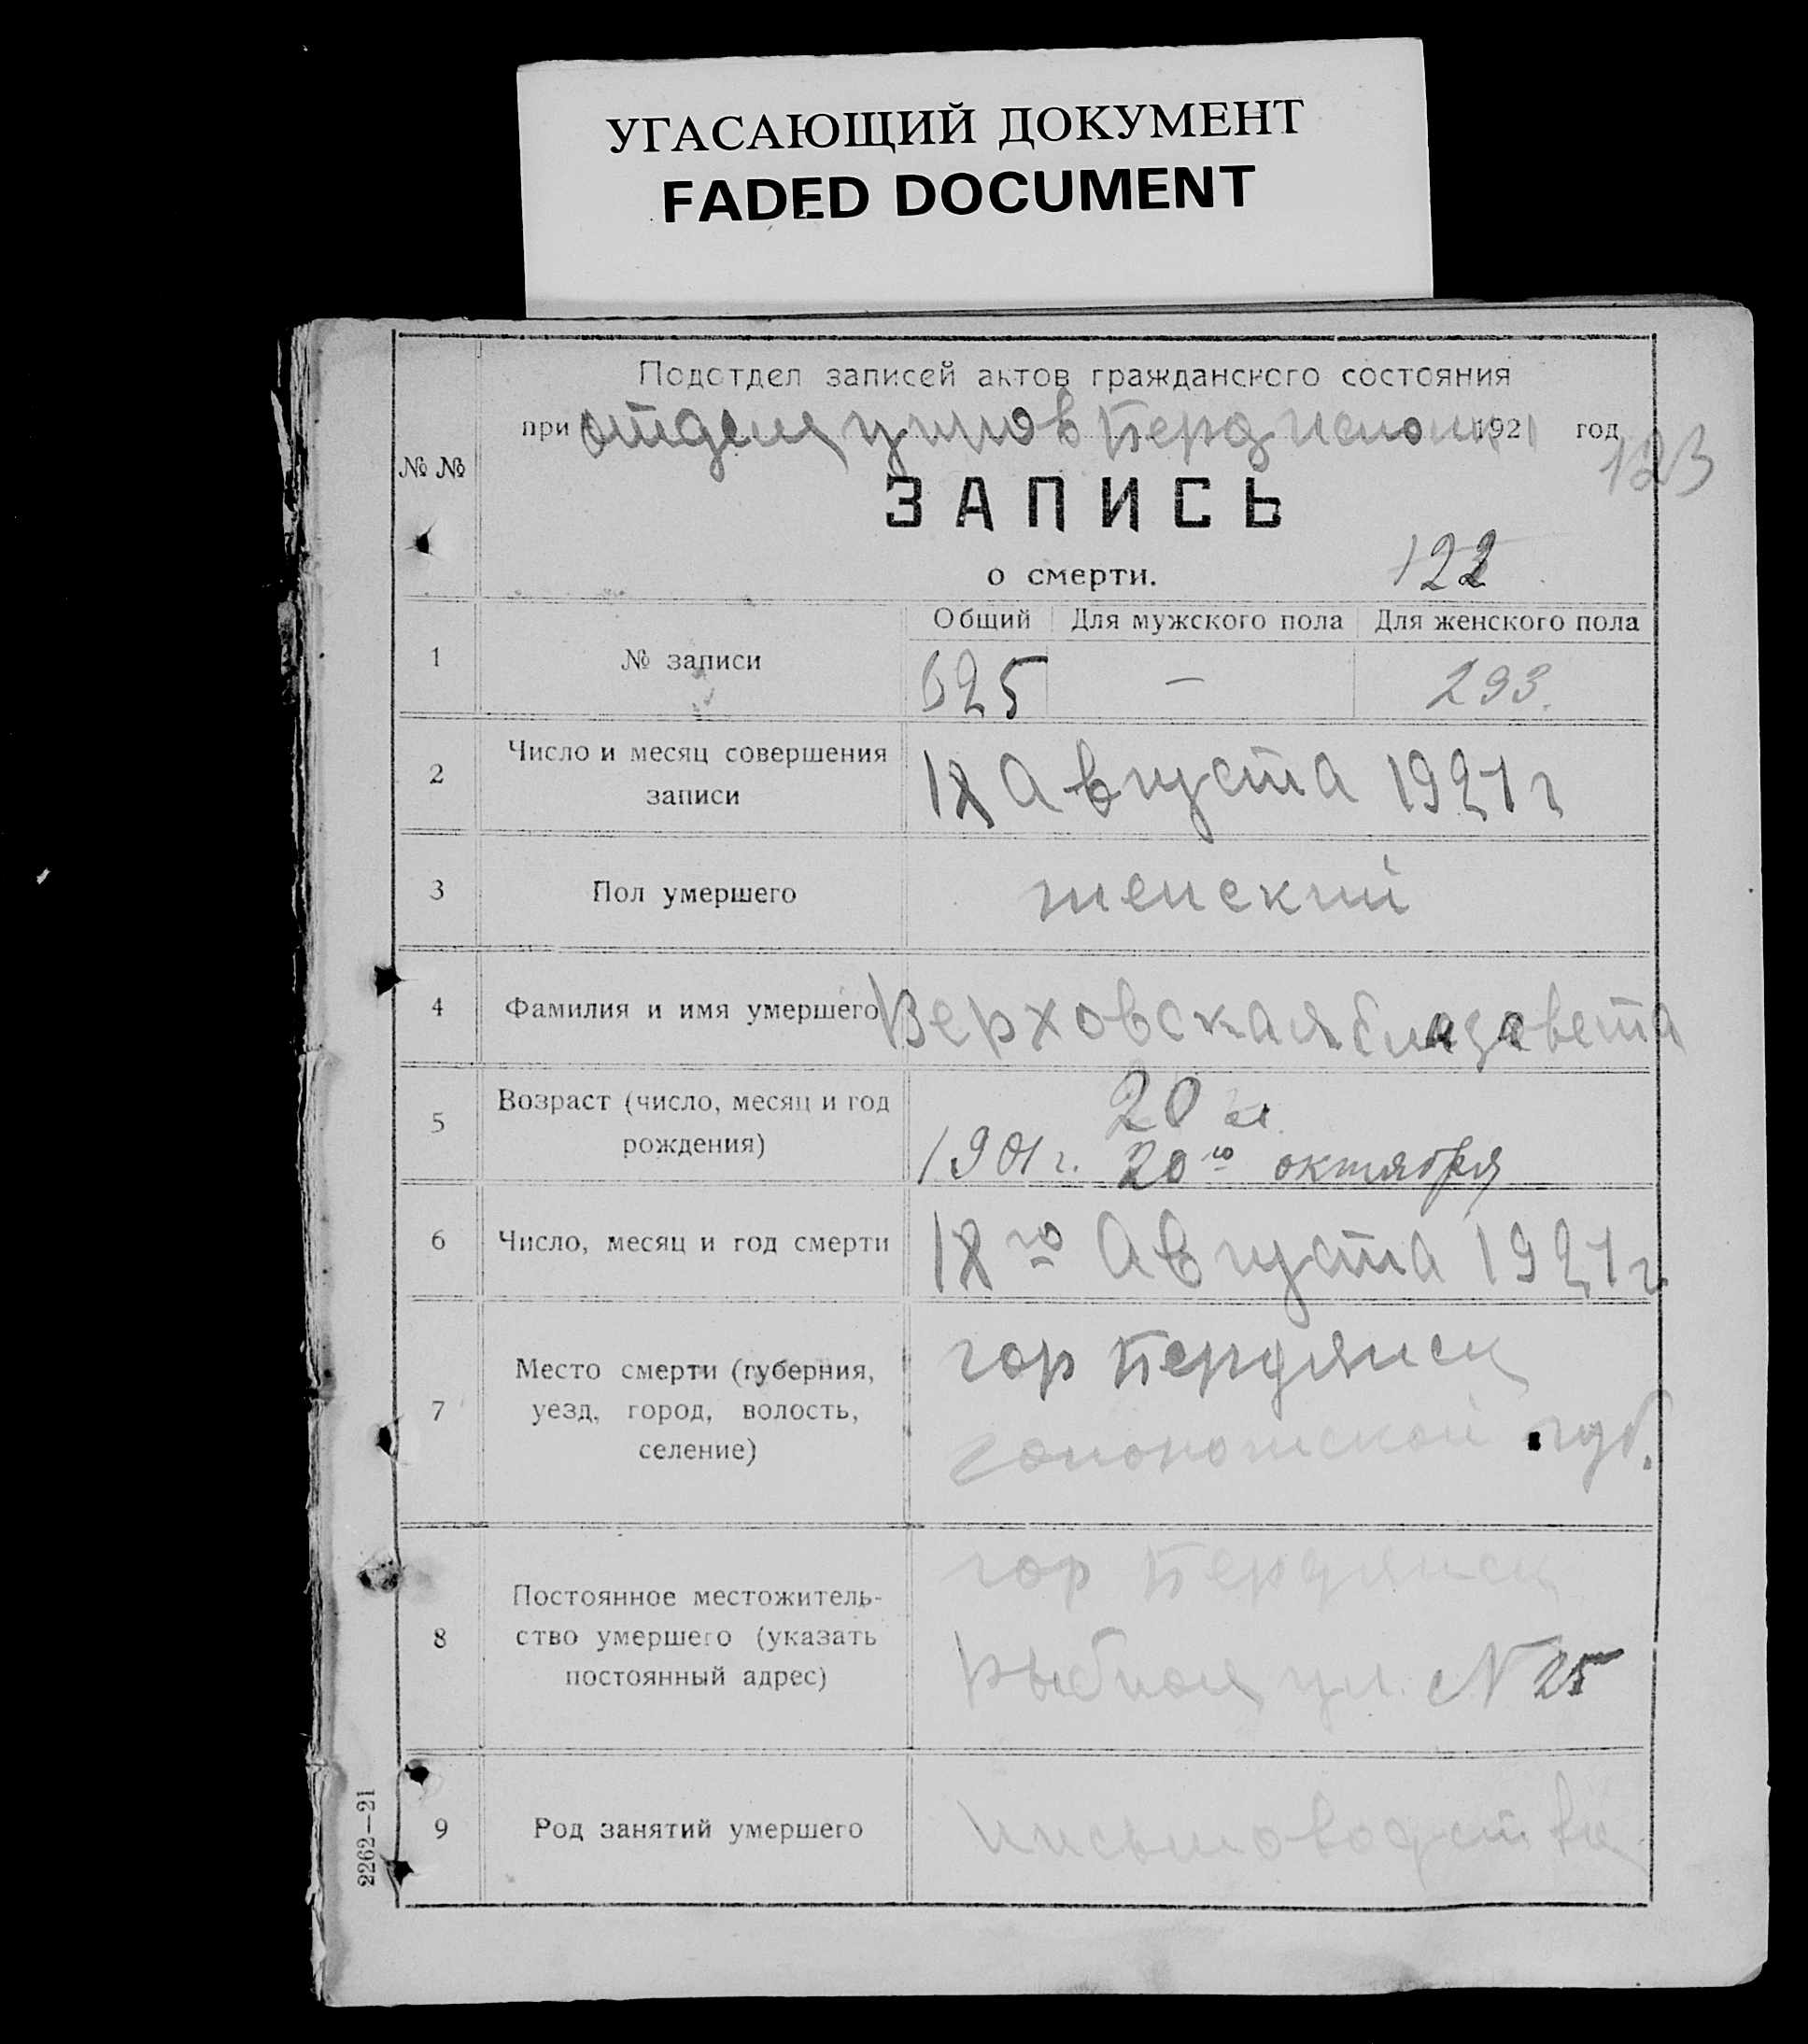 УГАСАЮЩИЙ ДОКУМЕНТ
FADED DOCUMENT
Подотдел записей актов гражданского состояния
при отдела управ Берд Исполк 1921 год
123
№ №
ЗАПИСЬ
о смерти.
122
Общий Для мужского пола Для женского пола
1 № записи 625 — 293.
2 Число и месяц совершения
записи
18 Августа 1921 г
3 Пол умершего женский
4 Фамилия и имя умершего Верховская Елизавета
5 Возраст (число, месяц и год
рождения)
20 л.
1901 г. 20го октября
6 Число, месяц и год смерти 18го Августа 1921 г.
7 Место смерти (губерния,
уезд, город, волость,
селение)
гор Бердянск
губ.
8 Постоянное местожитель-
ство умершего (указать
постоянный адрес)
гор Бердянск
Рыбная ул. N 25
9 Род занятий умершего
2262—21